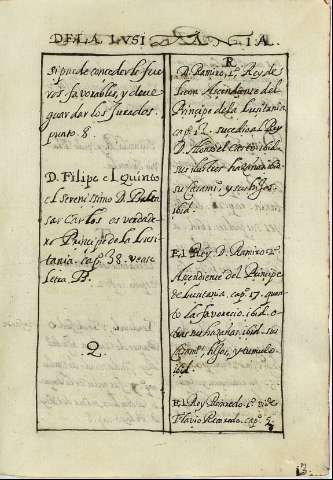 DE LA LVSI A IA.
si puede conceder los fue
ros favorables, y deve
guardar los Jurados.
punto. 8.
D. Filipe el Quinto
el serenissimo D. Baltе
sar Carlos es verdade
ro Principe de la Lusi
tania. cap. 38. vease
Letra. B.
Q.
R
D. Ramiro, 1. Rey de
Leon Ascendiente del
Principe de la Lusitania
cap. 17. sucedio al Rey
D. Alonso el Casto ibid.
sus ilustres hazañas ibid.
su Casam.º, y sus hijos
ibid.
El Rey D. Ramiro 2º
Ascendiente del Principe
de Lusitania. cap. 17. quan
to la favorecio. ibid. o
tras sus hazañas. ibid. sus
Casamᵗᵒˢ, hijos, y tumulo.
ibid.
El Rey Recaredo. 1. vide
Flavio Recaredo. cap. 5.